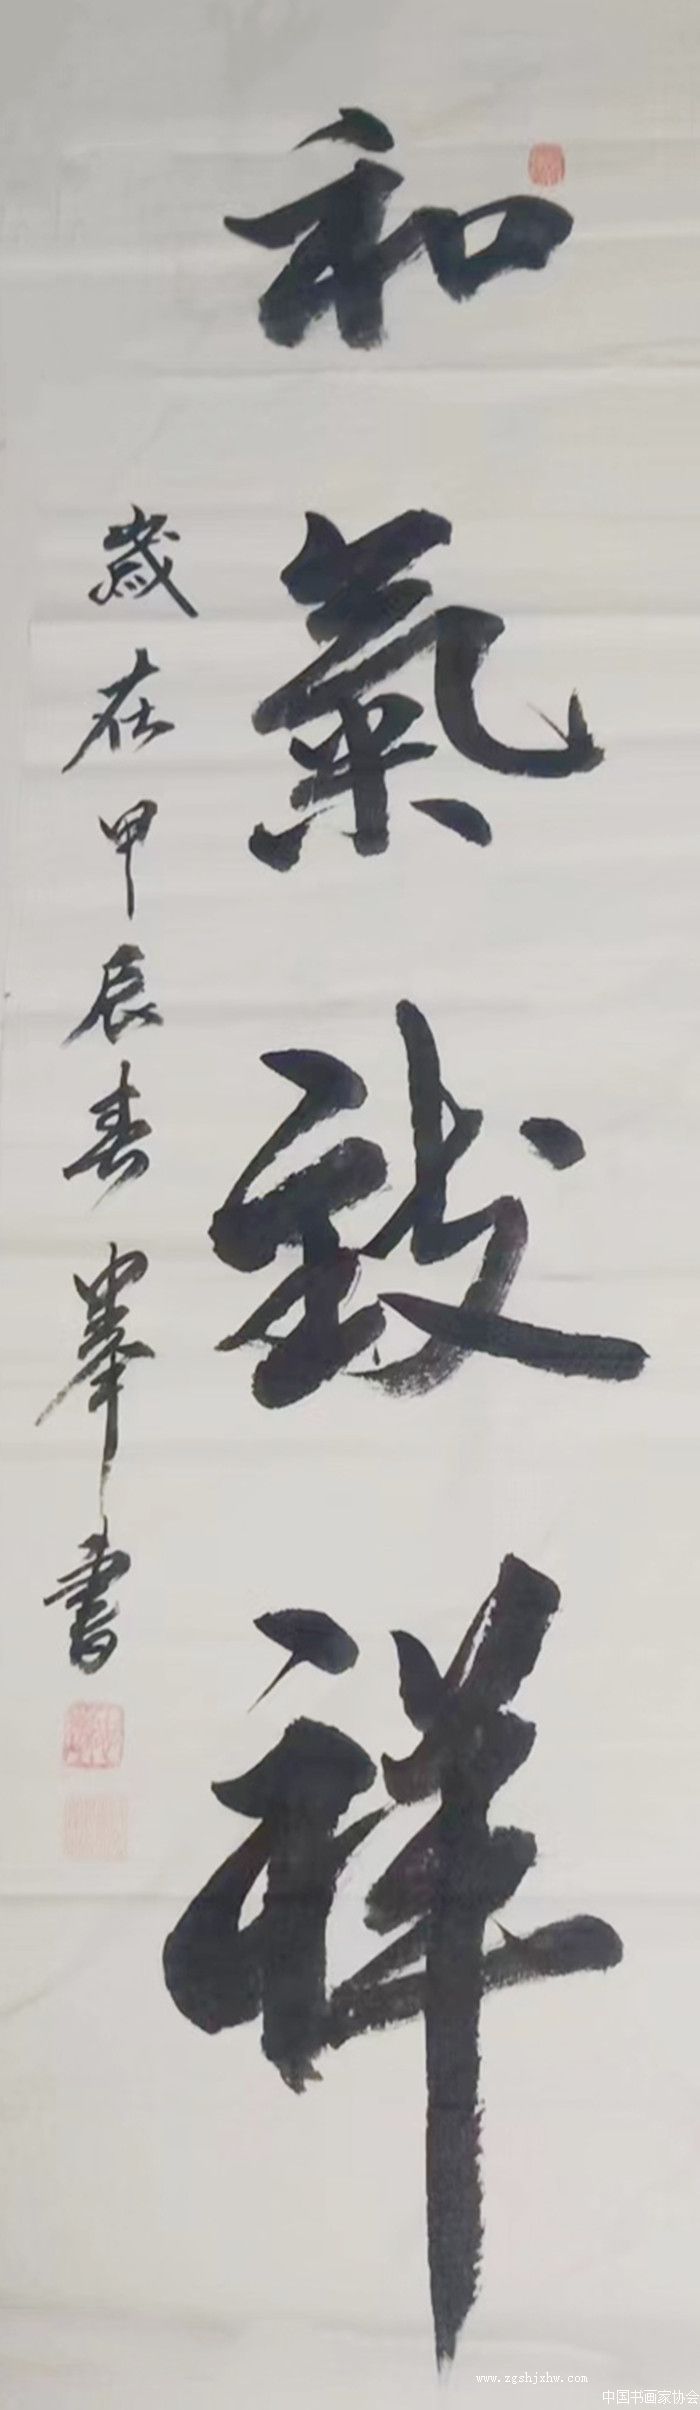 和氣致祥
歲在甲辰春峯書
www.zgshjxhw.com
中国书画家协会